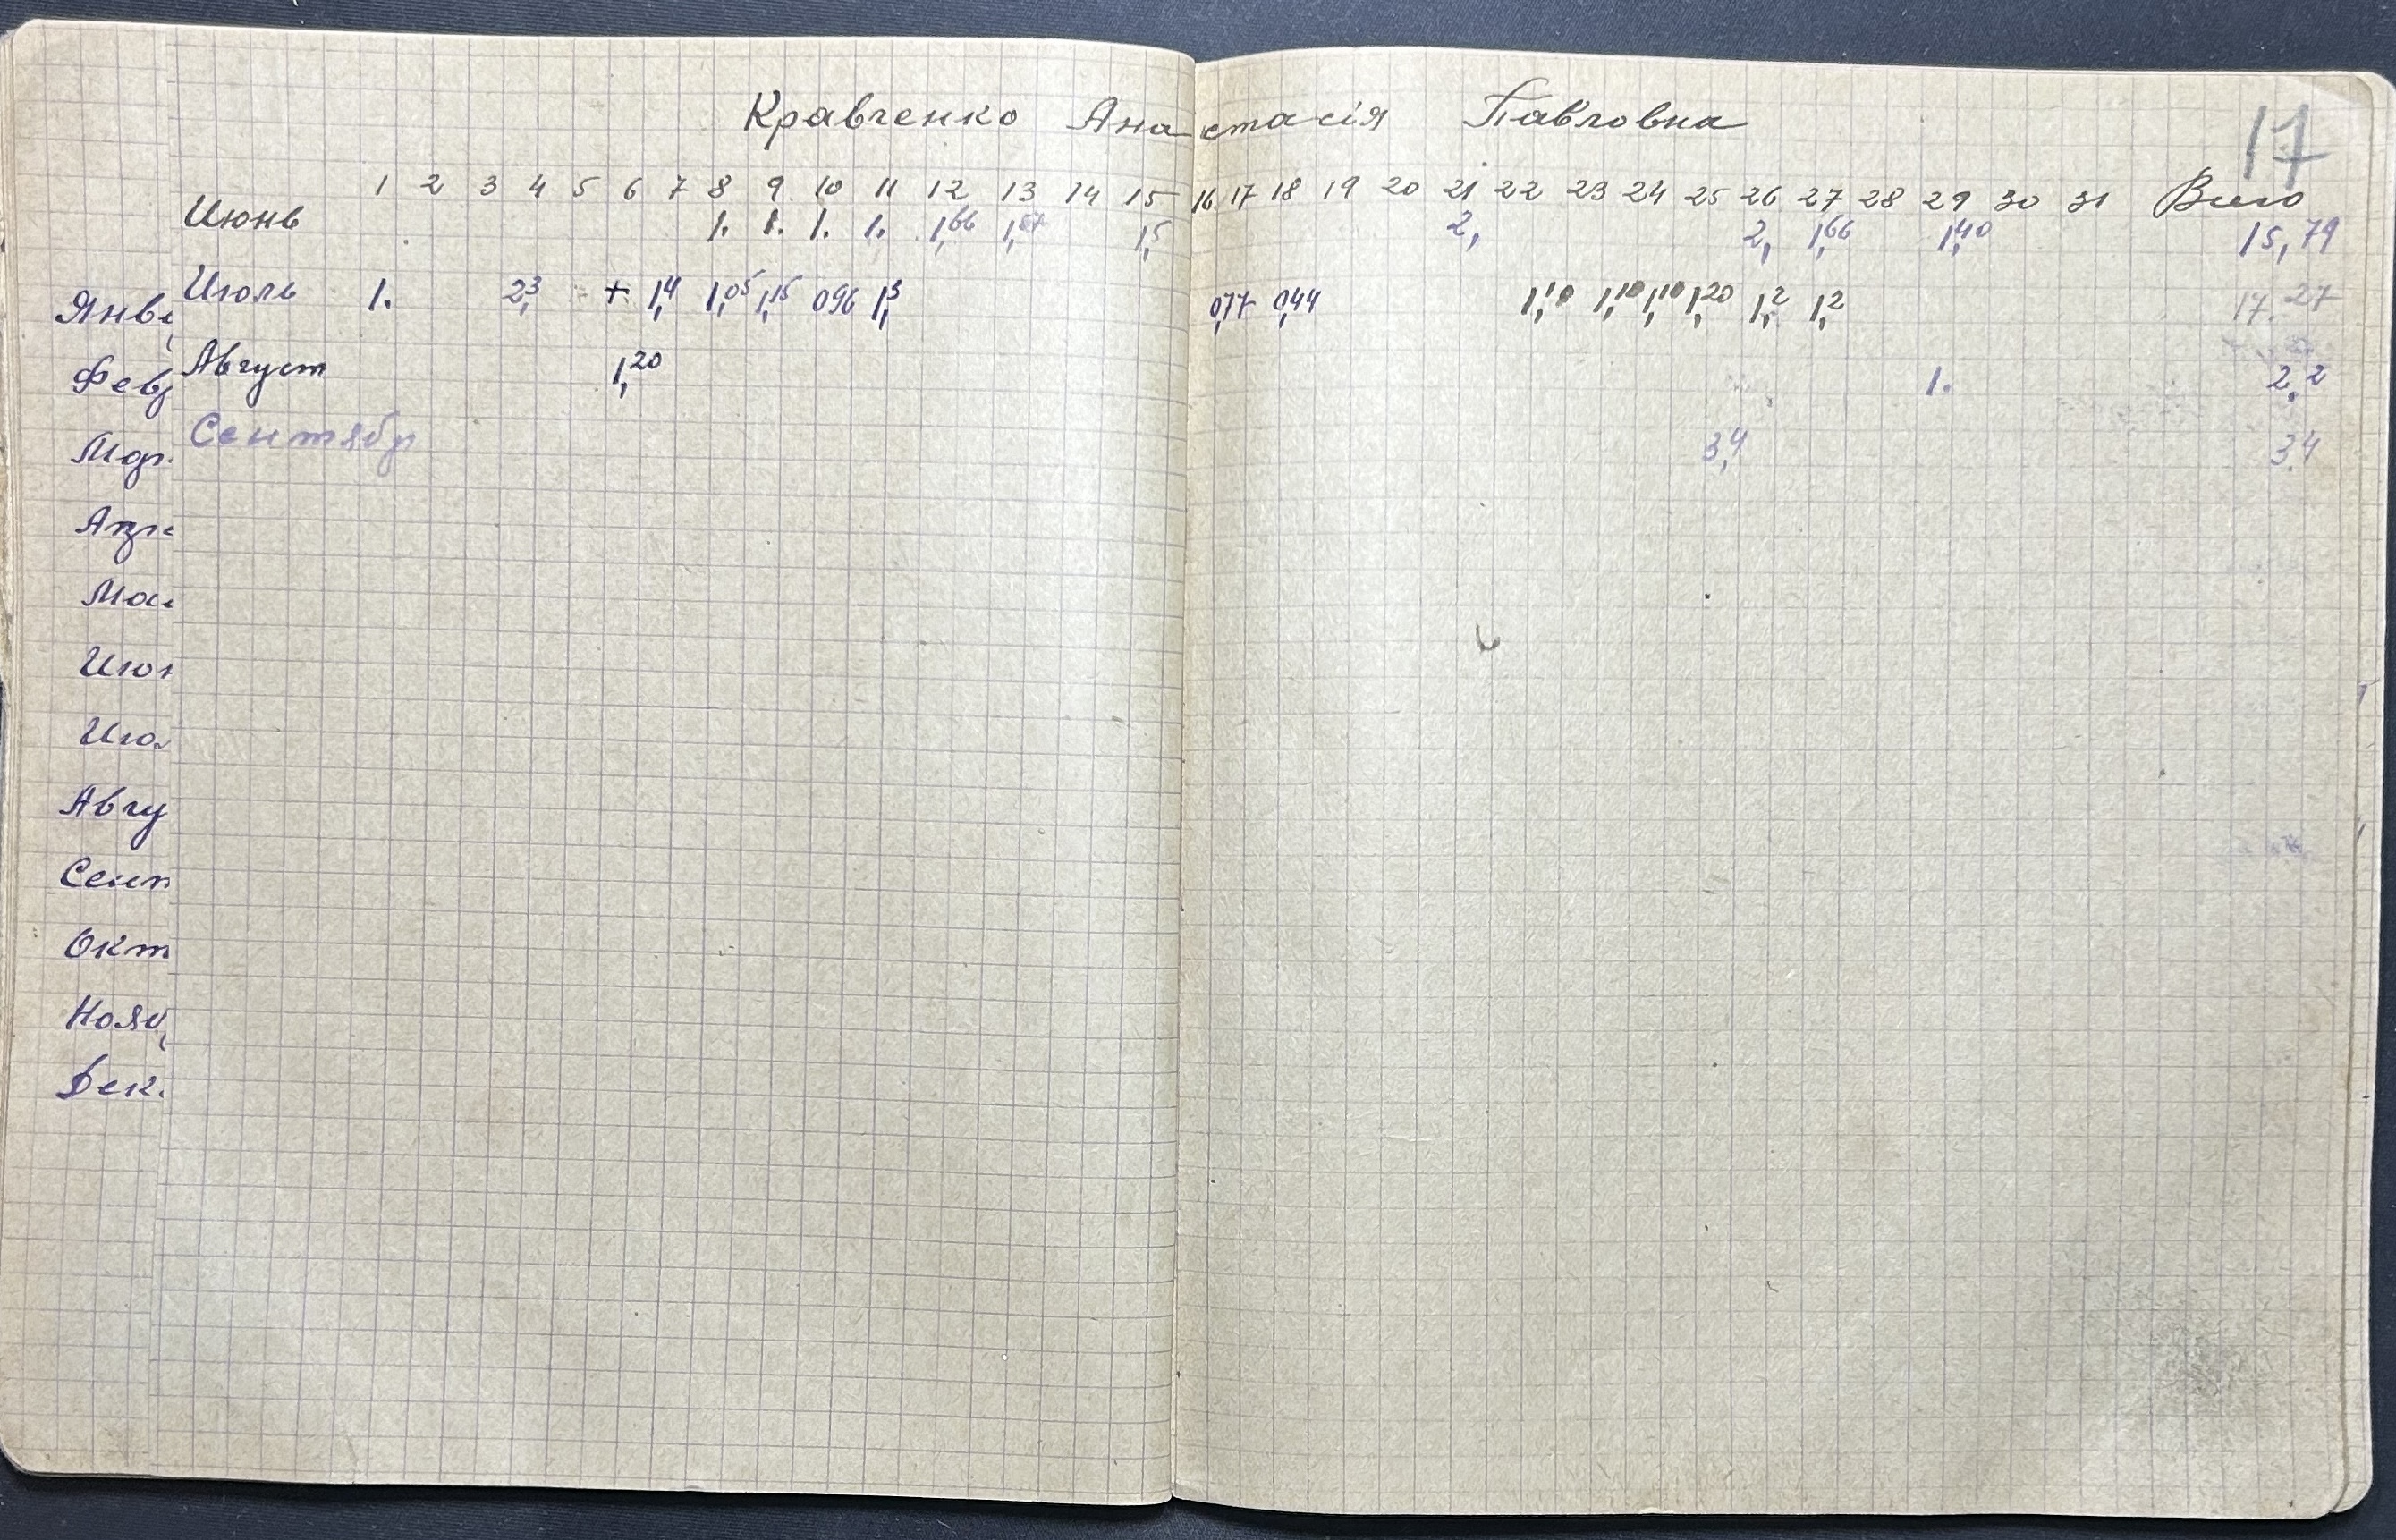 Кравченко Анастасія Павловна
17
1 2 3 4 5 6 7 8 9 10 11 12 13 14 15 16 17 18 19 20 21 22 23 24 25 26 27 28 29 30 31 Всього
Июнь 1. 1. 1. 1. 1,66 1,57 1,5 2, 2, 1,66 1,40 15,79
Июль 1. 2,3 + 1,4 1,05 1,15 096 1,3 0,77 0,44 1,10 1,10 1,10 1,20 1,2 1,2 17.27
Август 1,20 1. 2,2
Сентябр 3,4 3.4
Янв
Фев
Мар
Апр
Ма
Июн
Июл
Авгу
Сент
Окт
Нояб
Дек.